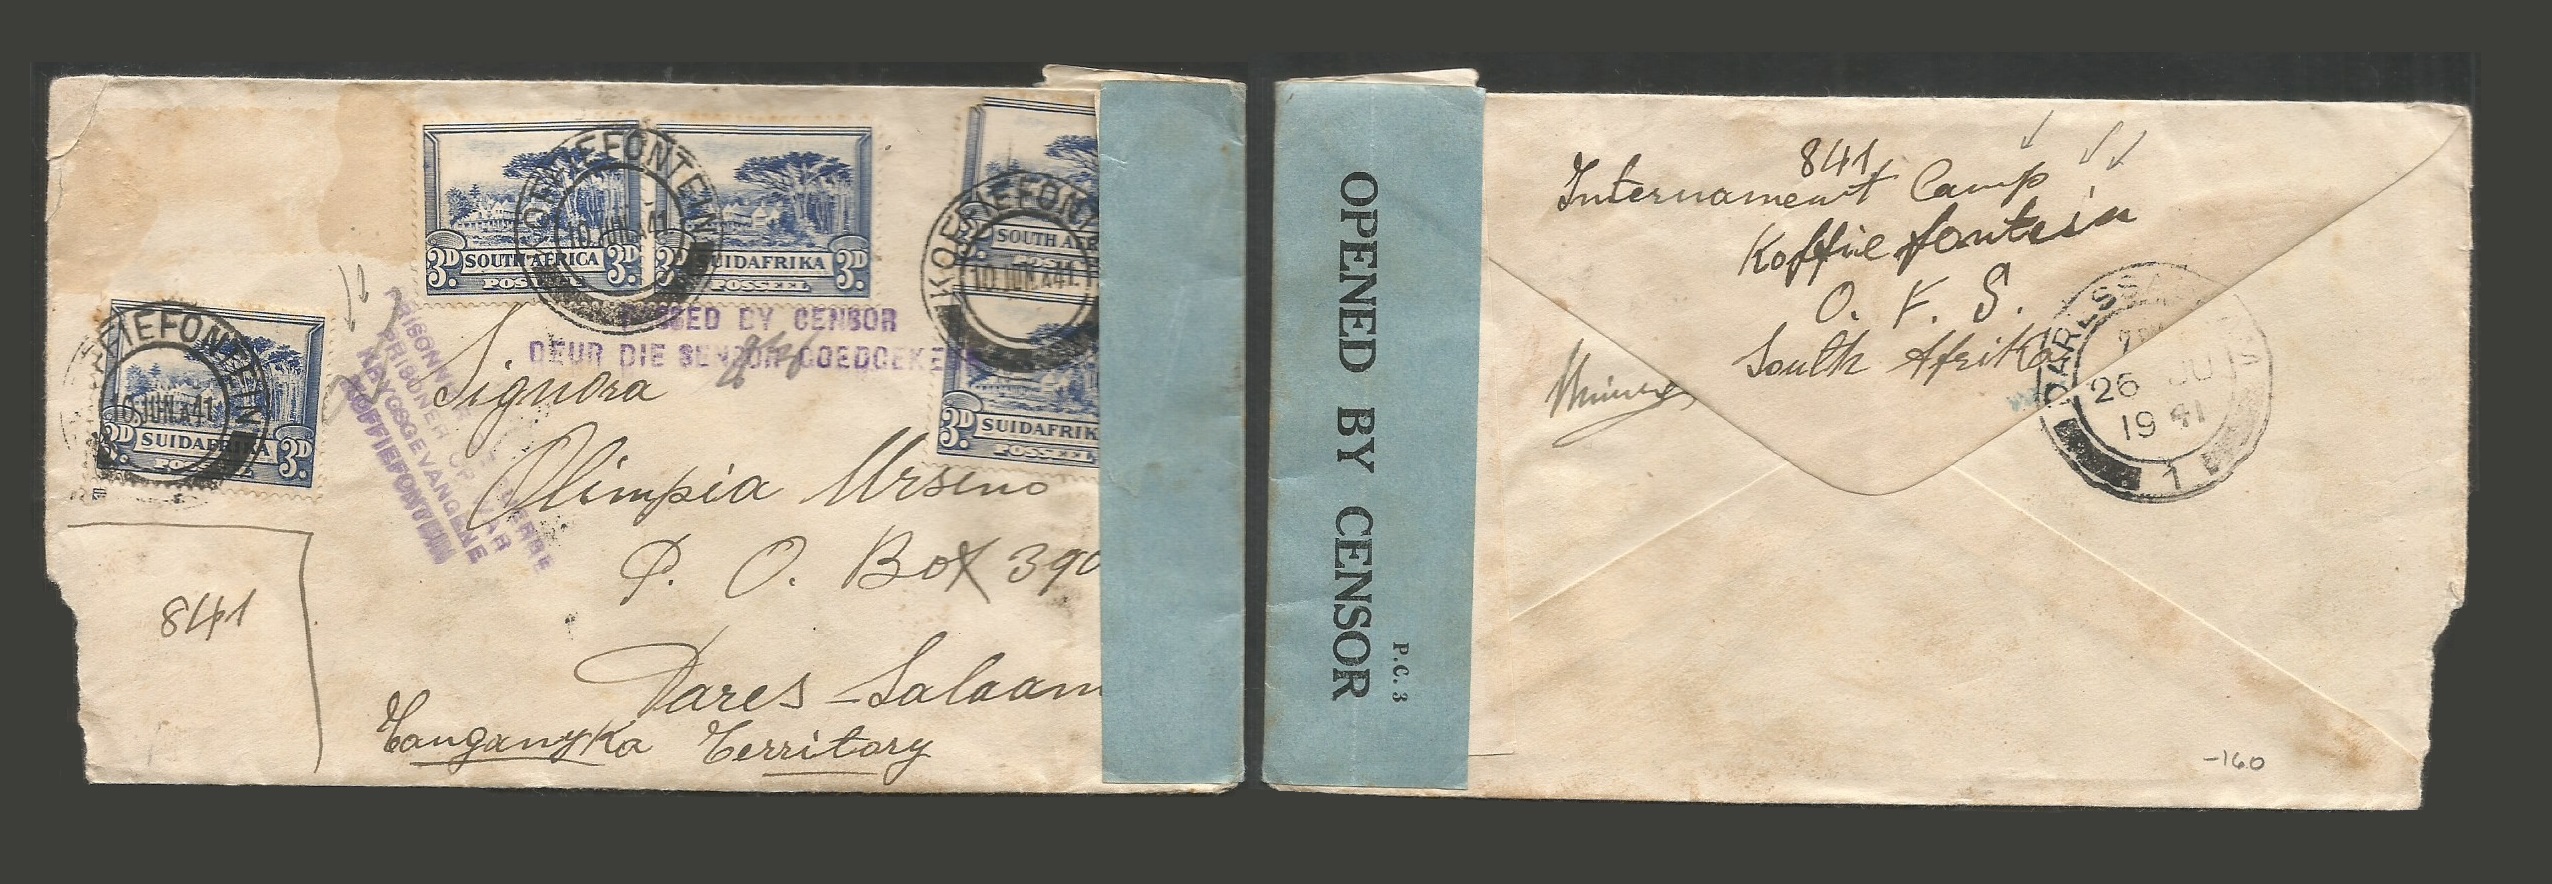 KOFFIEFONTEIN
10 JUN. 41
3D SOUTH AFRICA 3D
3D SUIDAFRIKA 3D
POSSEEL
KOFFIEFONT
10 JUN. 41
SOUTH AFR
3D SUIDAFRIK
POSSEEL
KOFFIEFONTEIN
10 JUN. 41
3D SUIDAFRIKA 3D
PASSED BY CENSOR
DEUR DIE SENSOR GOEDGEKEUR
PRISONNIER DE GUERRE
PRISONER OF WAR
KRYGSGEVANGENE
KOFFIEFONTEIN
Signora
Olimpia Urseno
P. O. Box 390
Dares-Salaam
Tanganyka Territory
841
OPENED BY CENSOR
P.C. 3
841
Internament Camp
Koffiefontein
O. F. S.
South Afrika
DAR ES SALAAM
26 JU
1941
1
-160